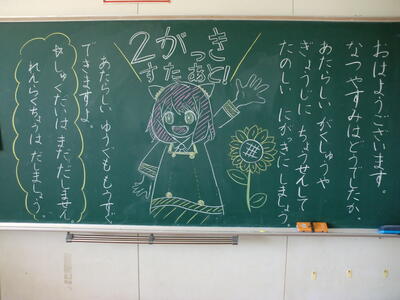 2がっき
すたあと!
おはようございます。
なつやすみはどうでしたか。
あたらしい がくしゅうや
ぎょうじに ちょうせんして
たのしい にがっきにしましょう
あたらしい ゆうぐももうすぐ
できますよ。
しゅくだいは まだ だしません。
れんらくちょうは だしましょう。